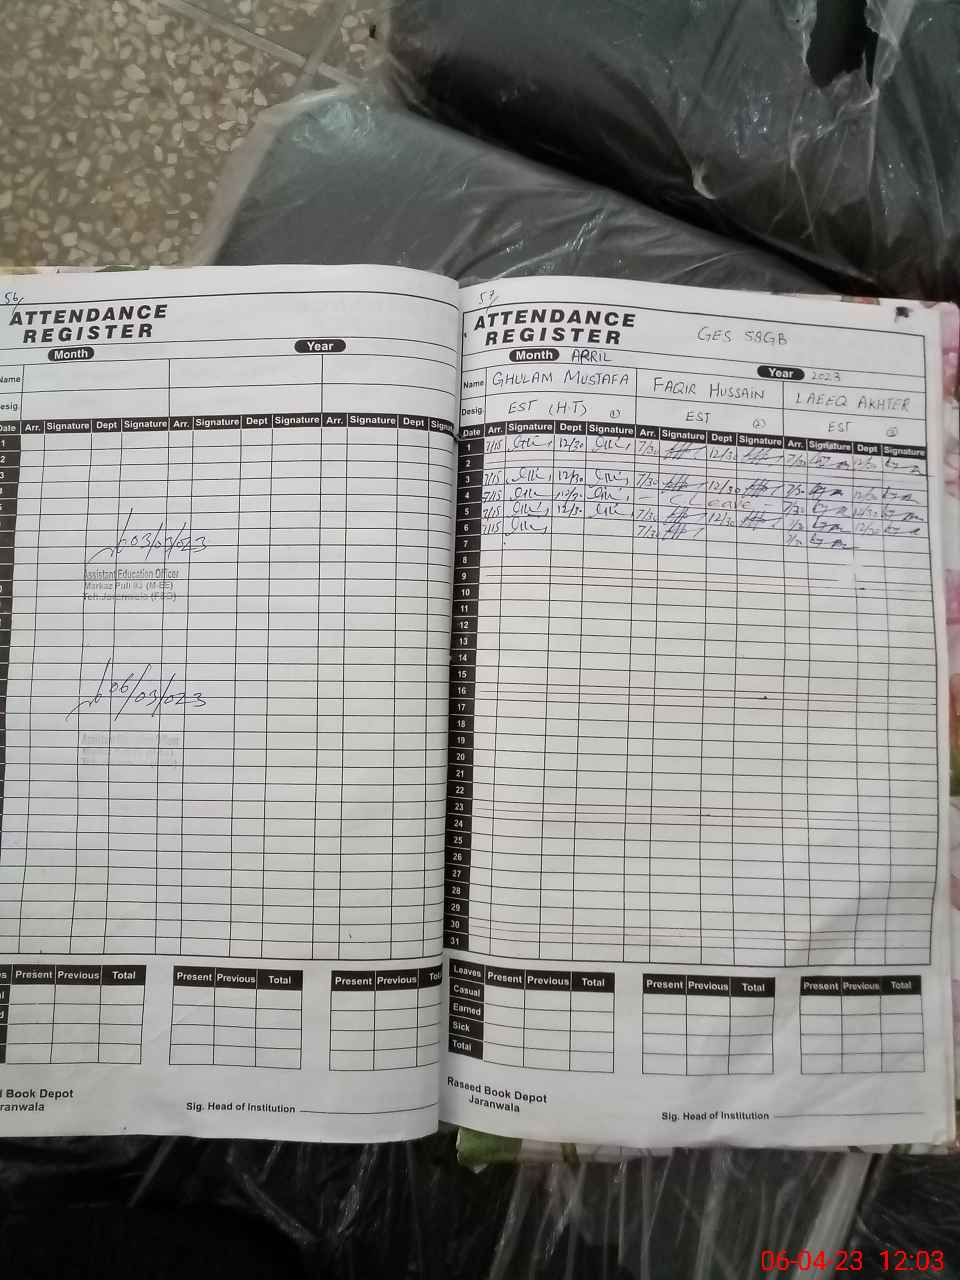 56
ATTENDANCE
REGISTER
Month
Year
Name
Desig.
Date Arr. Signature Dept Signature Arr. Signature Dept Signature Arr. Signature Dept Signature
1
2
3
03/03/023
Assistant Education Officer
Markaz Pull
Teh. Jaranwala (FSD)
06/03/023
Assistant Education Officer
Present Previous Total
Present Previous Total
Present Previous Total
Book Depot
Jaranwala
Sig. Head of Institution
57
ATTENDANCE
REGISTER
GES 58GB
Month APRIL
Year 2023
Name GHULAM MUSTAFA FAQIR HUSSAIN LAEEQ AKHTER
Desig. EST (H.T) (1) EST (2) EST (3)
Date Arr. Signature Dept Signature Arr. Signature Dept Signature Arr. Signature Dept Signature
1 7/15 12/30 7/30 12/30 7/30 12/30
2
3 7/15 12/30 7/30 12/30 7/30 12/30
4 7/15 12/30 C Leave 7/30 12/30
5 7/15 12/30 7/30 12/30 7/30 12/30
6 7/15 7/30 7/30
7
8
9
10
11
12
13
14
15
16
17
18
19
20
21
22
23
24
25
26
27
28
29
30
31
Leaves Present Previous Total Present Previous Total Present Previous Total
Casual
Earned
Sick
Total
Raseed Book Depot
Jaranwala
Sig. Head of Institution
06-04-23 12:03